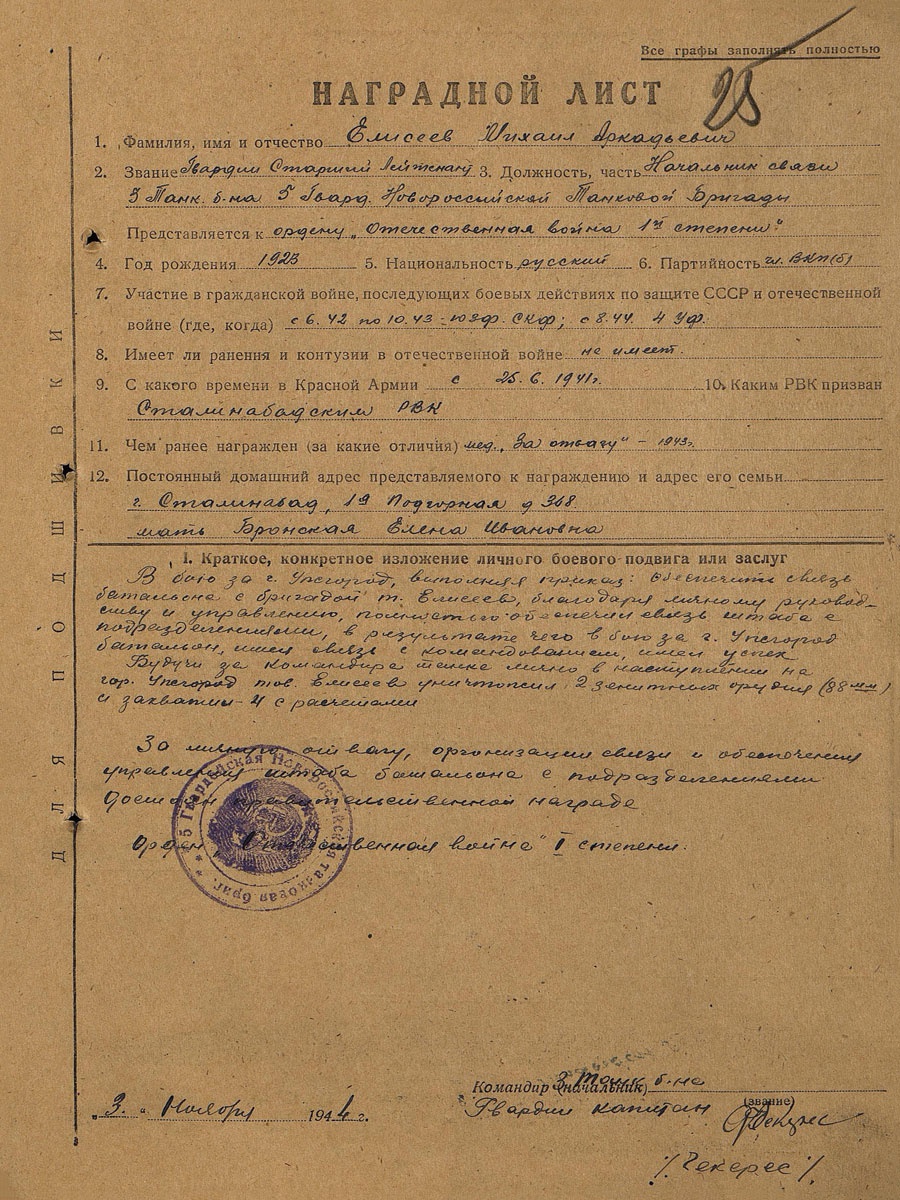 Все графы заполнять полностью
НАГРАДНОЙ ЛИСТ
28
1. Фамилия, имя и отчество Елисеев Михаил Аркадьевич
2. Звание Гвардии Старший Лейтенант 3. Должность, часть Начальник связи
3 Танк. б-на 5 Гвард. Новороссийской Танковой Бригады
Представляется к ордену „Отечественная война 1й степени"
4. Год рождения 1923 5. Национальность русский 6. Партийность чл. ВКП(б)
7. Участие в гражданской войне, последующих боевых действиях по защите СССР и отечественной
войне (где, когда) с 6.42 по 10.43 - ЮЗФ. СКФ; с 8.44. 4 УФ.
8. Имеет ли ранения и контузии в отечественной войне не имеет.
9. С какого времени в Красной Армии с 25.6.1941г. 10. Каким РВК призван
Сталинабадским РВК
11. Чем ранее награжден (за какие отличия) мед. „За отвагу" - 1943г.
12. Постоянный домашний адрес представляемого к награждению и адрес его семьи
г. Сталинабад, 1я Подгорная д 368
мать Бронская Елена Ивановна
I. Краткое, конкретное изложение личного боевого подвига или заслуг
В бою за г. Ужгород, выполняя приказ: обеспечить связь
батальона с бригадой т. Елисеев, благодаря личному руковод-
ству и управлению, полностью обеспечил связь штаба с
подразделениями, в результате чего в бою за г. Ужгород
батальон, имея связь с командованием, имел успех
Будучи за командира танка лично в наступлении на
гор. Ужгород тов. Елисеев уничтожил 2 зенитных орудия (88 мм)
и захватил - 4 с расчетами
За личную отвагу, организации связи и обеспечения
управления штаба батальона с подразделениями
достоин правительственной награде
Орден „Отечественная война" I степени.
5 Гвардейская Новороссийская танковая бриг.
Командир (начальник) 3 танк б-на
„3" Ноября 1944 г.
Гвардии капитан
(звание)
/Чекерес/
ДЛЯ ПОДШИВКИ